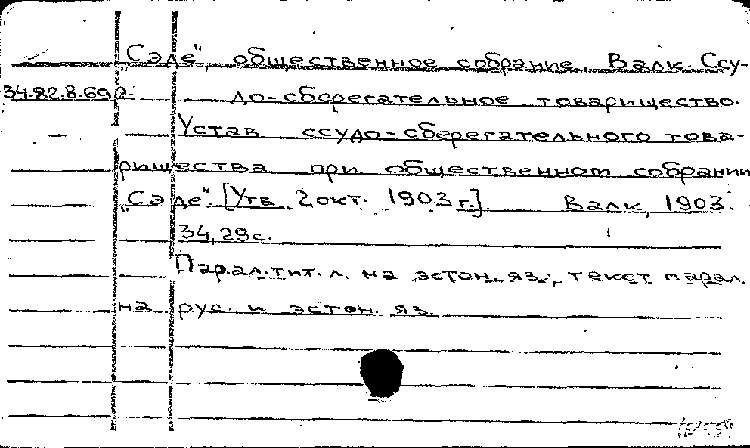 „Сэде“, общественное собрание. Валк. Ссу-
34.82.8.692. до-сберегательное товарищество.
Устав ссудо-сберегательного това-
рищества при общественном собрании
„Сэде“. [Утв. 2 окт. 1903 г.] Валк, 1903.
34, 29с.
Парал. тит. л. на эстон. яз., текст парал.
на рус. и эстон. яз.